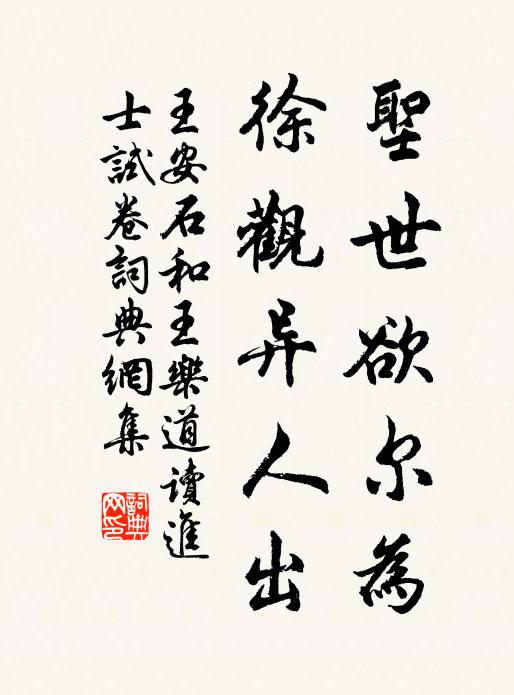 聖世欲尔為
徐觀异人出
王安石和王樂道讀進
士試卷詞典網集
詞典
网印